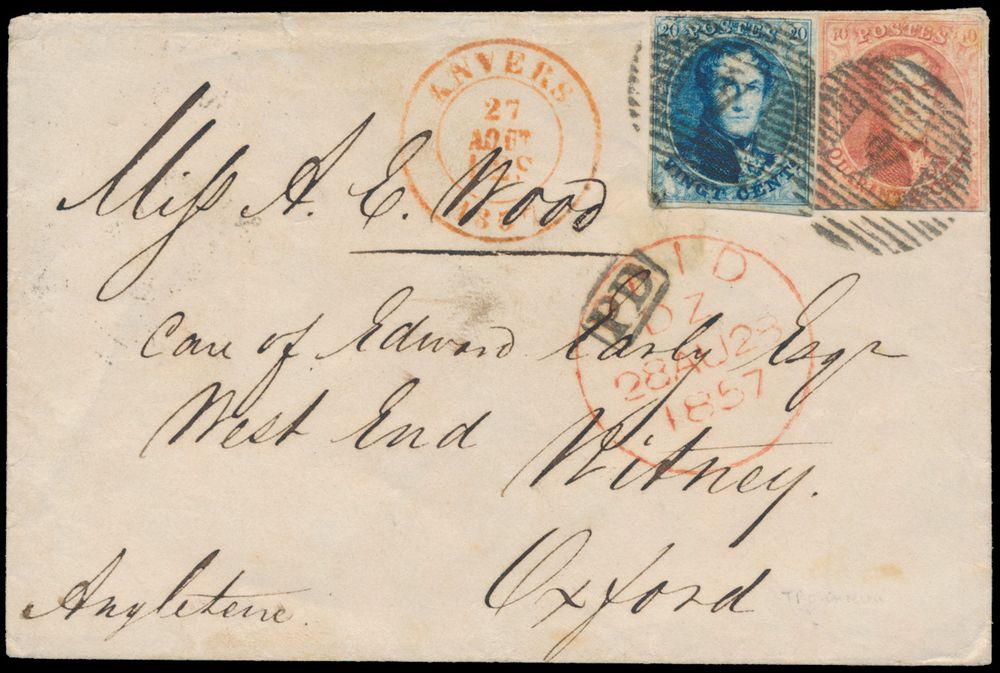 20 POSTES 20
VINGT CENT.
40 POSTES 40
ANVERS
27
AOUT
1857
PAID
DZ
28AU28
1857
PD
Miss A. E. Wood
Care of Edward Early Esqr
West End
Witney.
Oxford
Angleterre.